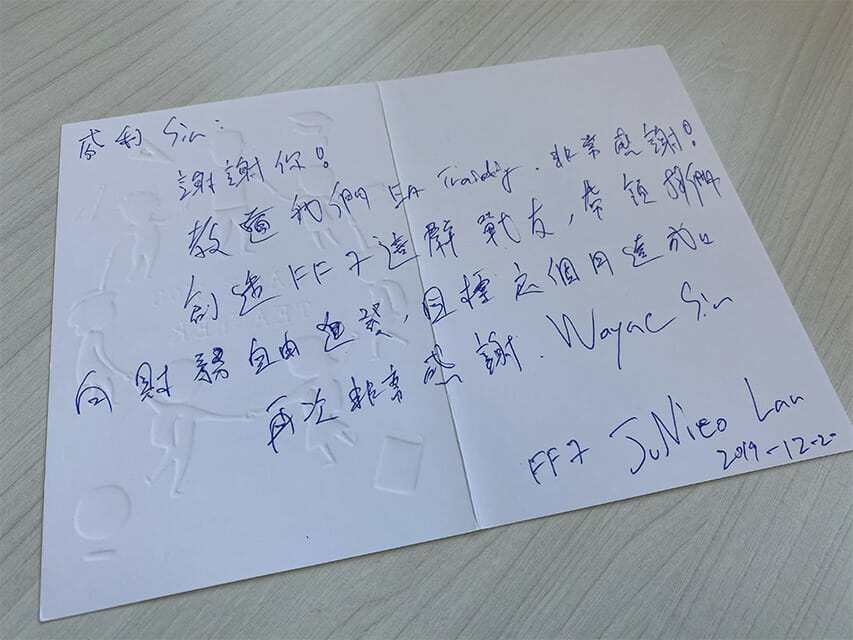 Sir:
謝謝你!
教導我們 EA Trading. 非常感謝!
創造FF7這群戰友, 帶領我們
向財務自由進發, 目標六個月達成!!
再次非常感謝. Wayne Sir
FF7 Lau
2019-12-20
YOU
TEACHER